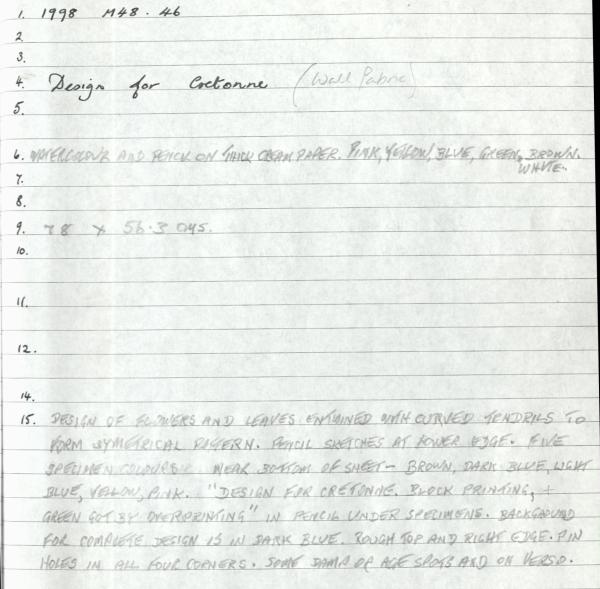 1. 1998 M48.46
2.
3.
4. Design for Cretonne (Wall Fabric)
5.
6. WATERCOLOUR AND PENCIL ON THICK CREAM PAPER. PINK, YELLOW, BLUE, GREEN, BROWN.
WHITE.
7.
8.
9. 78 x 56.3 cms.
10.
11.
12.
14.
15. DESIGN OF FLOWERS AND LEAVES ENTWINED WITH CURVED TENDRILS TO
FORM SYMETRICAL PATTERN. PENCIL SKETCHES AT LOWER EDGE. FIVE
SPECIMEN COLOURS NEAR BOTTOM OF SHEET - BROWN, DARK BLUE, LIGHT
BLUE, YELLOW, PINK. "DESIGN FOR CRETONNE. BLOCK PRINTING, +
GREEN GOT BY OVERPRINTING" IN PENCIL UNDER SPECIMENS. BACKGROUND
FOR COMPLETE DESIGN IS IN DARK BLUE. ROUGH TOP AND RIGHT EDGE. PIN
HOLES IN ALL FOUR CORNERS. SOME DAMP OR AGE SPOTS AND ON VERSO.